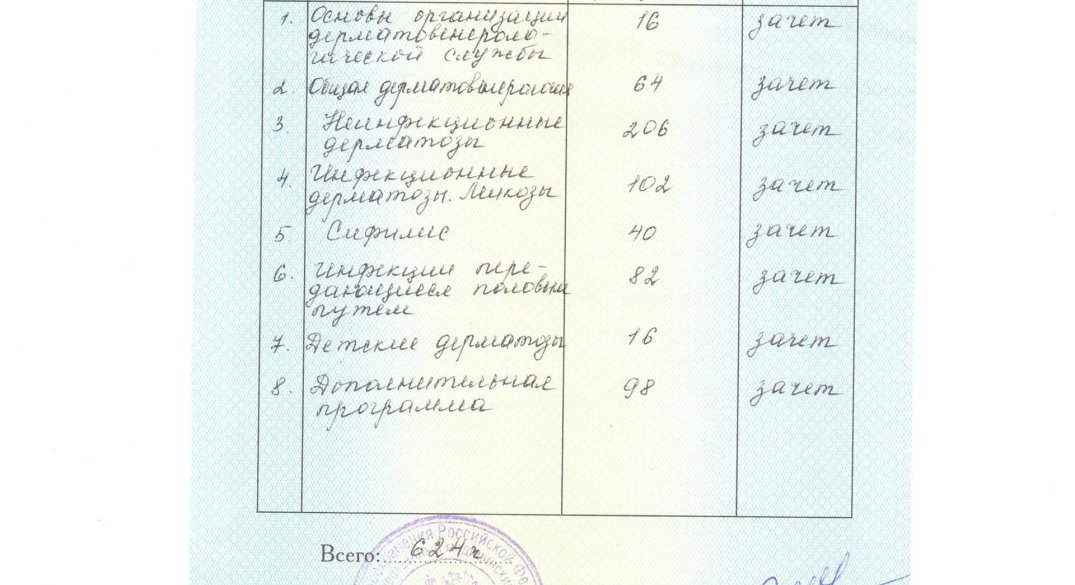 1. Основы организации 16 зачет
дерматовенероло-
гической службы
2. Общая дерматовенерология 64 зачет
3 Неинфекционные 206 зачет
дерматозы
4. Инфекционные 102 зачет
дерматозы. Лепкозы
5 Сифилис 40 зачет
6. Инфекции пере- 82 зачет
дающиеся половым
путем
7. Детские дерматозы 16 зачет
8. Дополнительная 98 зачет
программа
Всего: 624ч
Российской Фе